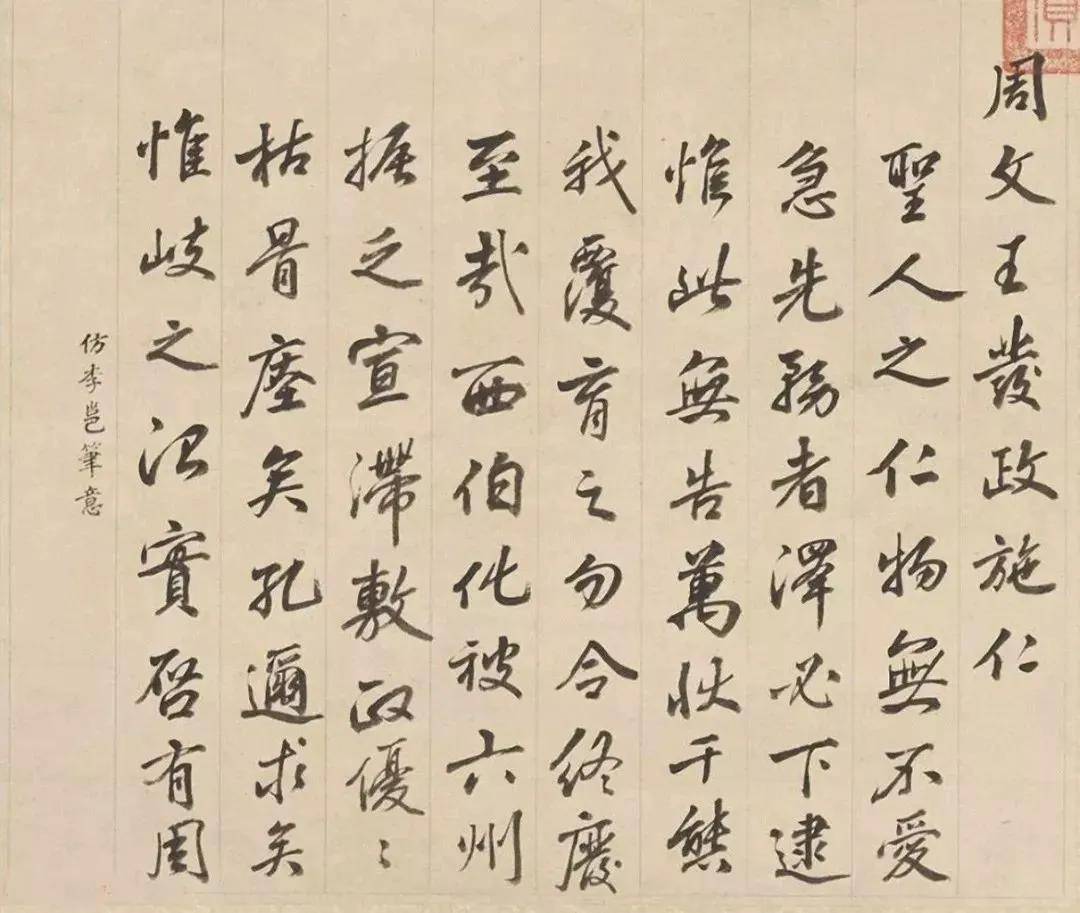 周文王發政施仁
聖人之仁物無不愛
急先務者澤必下逮
惟此無告萬狀千態
我覆育之勿令終廢
至哉西伯化被六州
振乏宣滯敷政優〻
枯骨瘞矣孔邇求矣
惟岐之治實启有周
仿李邕筆意